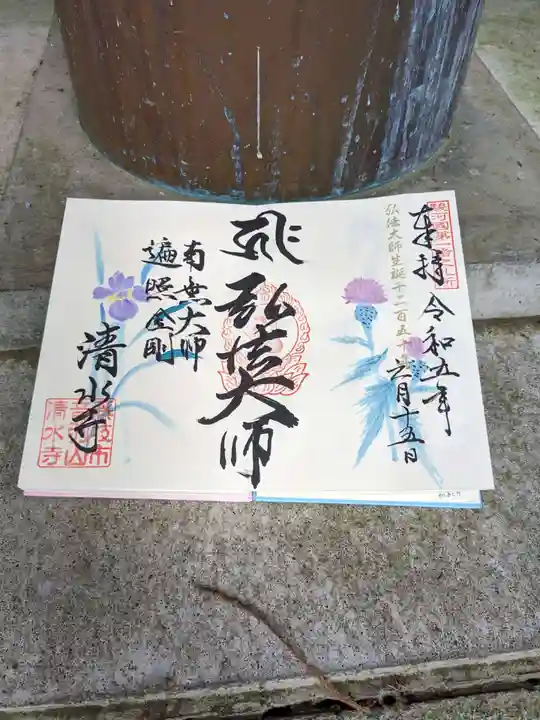 駿河國第一番札所
奉拝 令和五年
六月十五日
弘法大師生誕千二百五十年
弘法大師
南無大師
遍照金剛
清水寺
清水寺